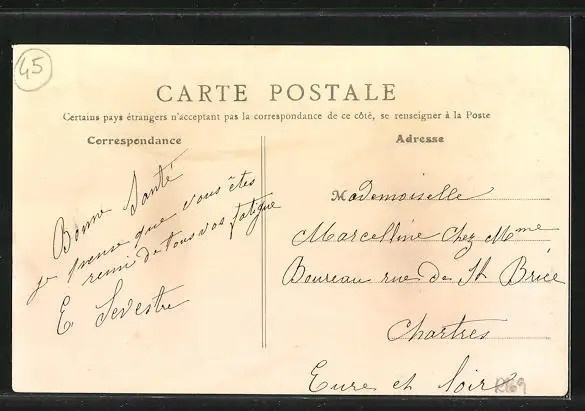 45
CARTE POSTALE
Certains pays étrangers n'acceptant pas la correspondance de ce côté, se renseigner à la Poste
Correspondance
Adresse
Bonne Santé
je pense que vous êtes
remi de tous vos fatigue
E Sevestre
Mademoiselle
Marcelline chez Mme
Boureau rue de St Brice
Chartres
Eure et Loir